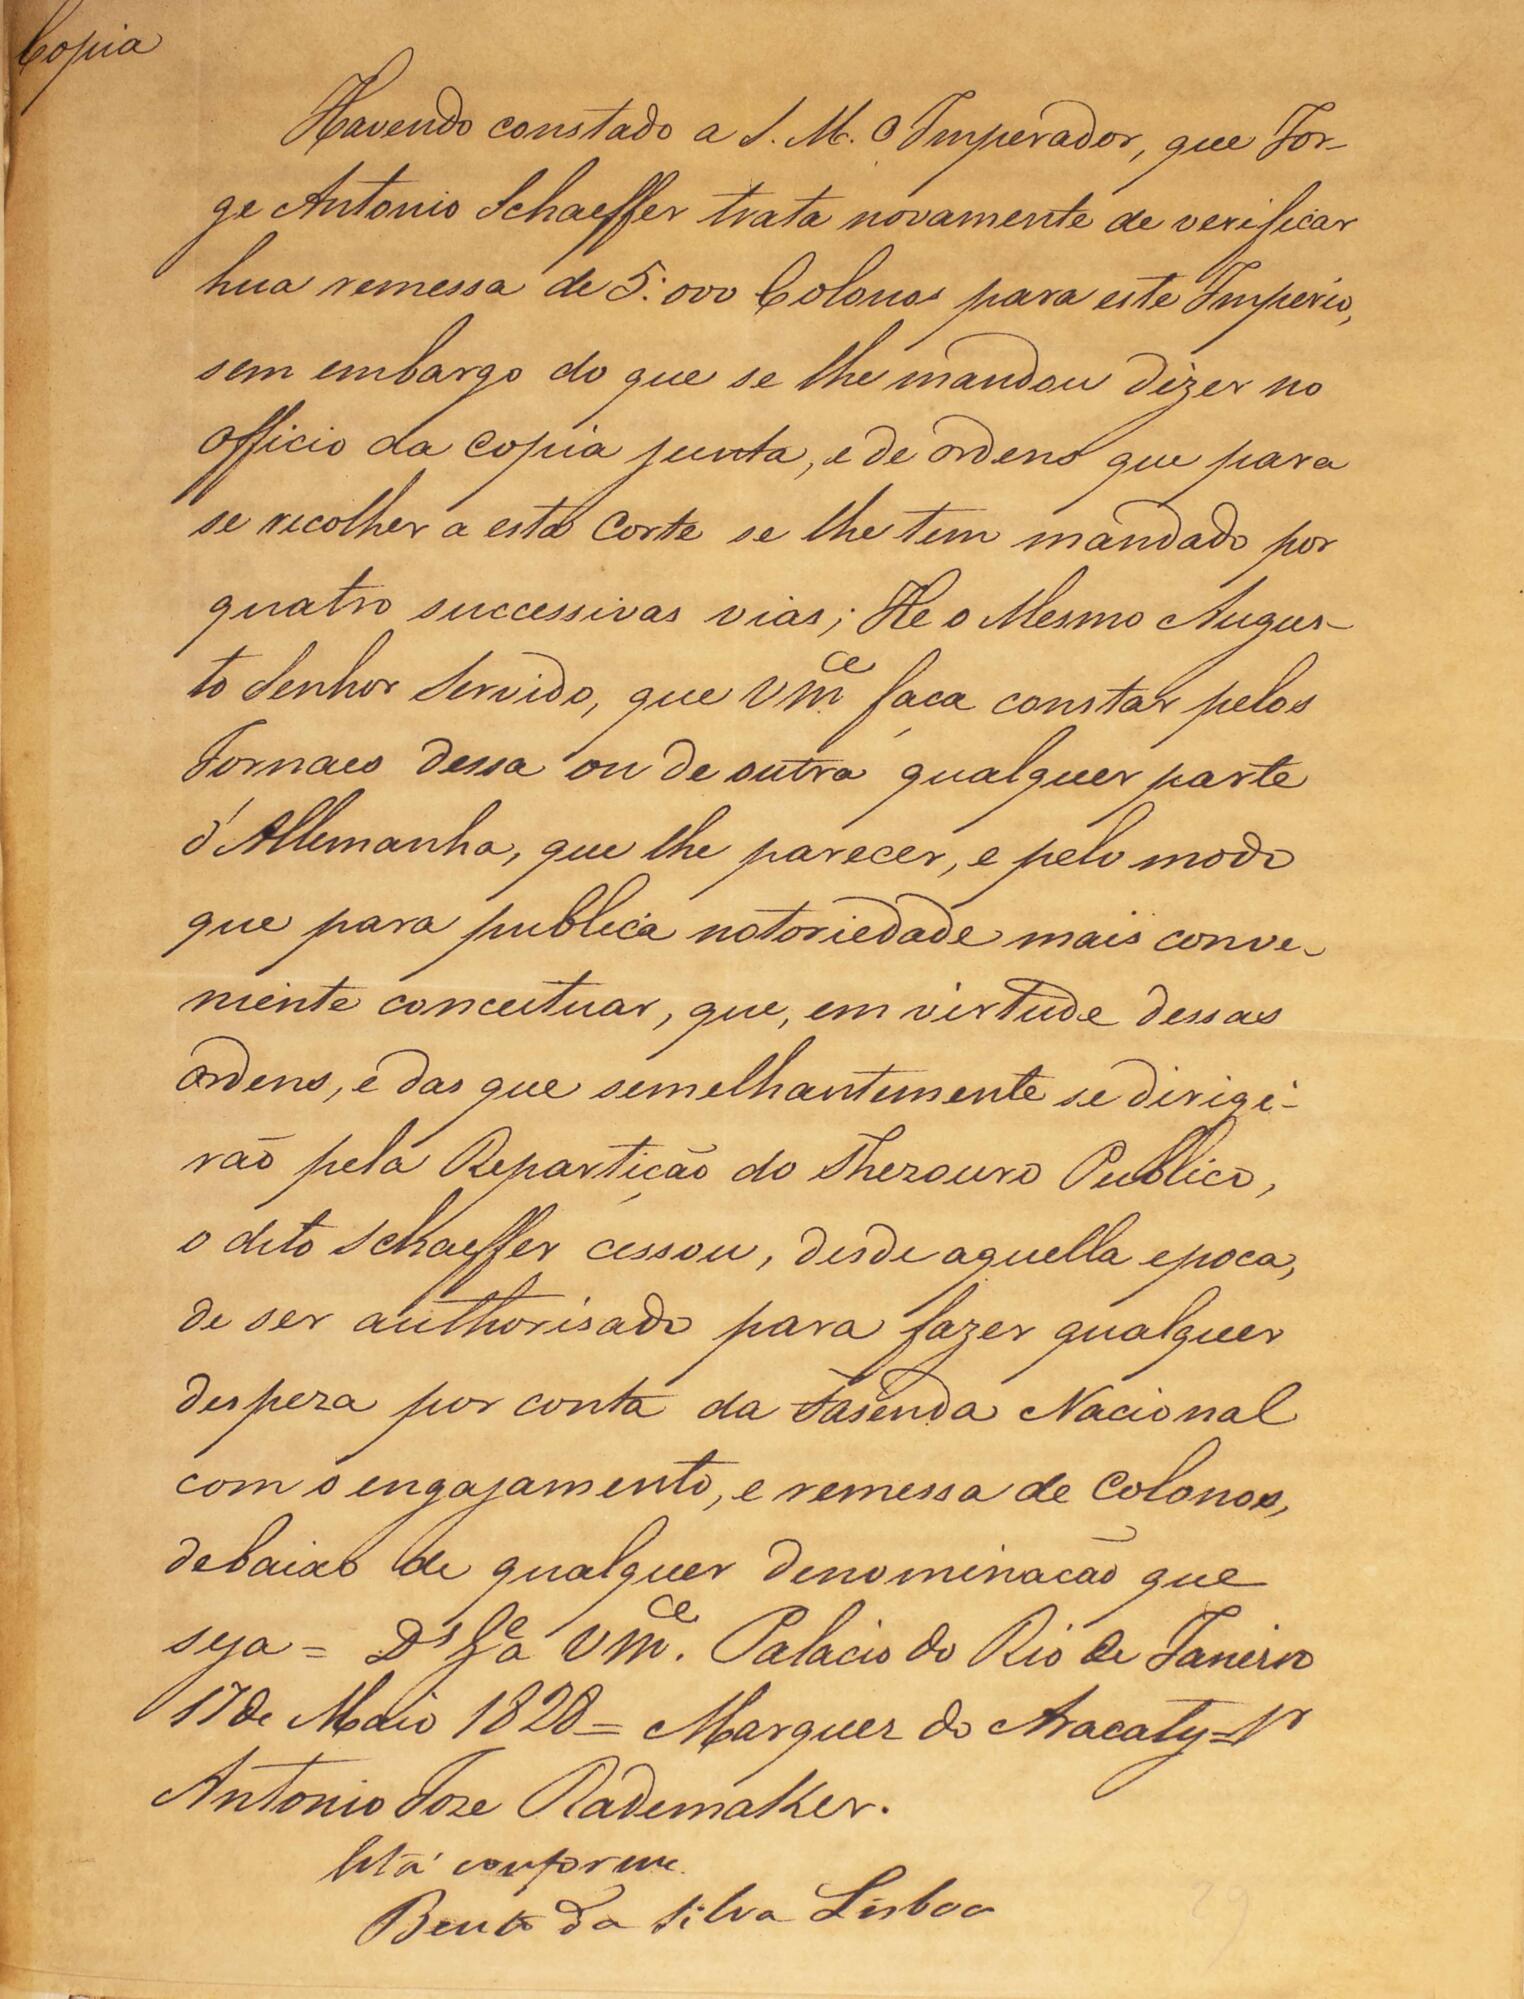 Copia
Havendo constado a S. M. O Imperador, que Jor-
ge Antonio Schaeffer trata novamente de verificar
hua remessa de 5:000 Colonos para este Imperio,
sem embargo do que se lhe mandou dizer no
officio da copia junta, e de ordens que para
se recolher a esta Corte se lhe tem mandado por
quatro successivas vias; He o Mesmo Augus-
to Senhor Servido, que Vmce faça constar pelos
Jornaes dessa ou de outra qualquer parte
d'Allemanha, que lhe parecer, e pelo modo
que para publica notoriedade mais conve-
niente conceituar, que, em virtude dessas
ordens, e das que semelhantemente se dirigi-
rão pela Repartição do Thezouro Publico,
o dito Schaeffer cessou, desde aquella epoca,
de ser authorisado para fazer qualquer
despeza por conta da Fasenda Nacional
com o engajamento, e remessa de Colonos,
debaixo de qualquer denominacão que
seja = Ds Ge a Vmce. Palacio do Rio de Janeiro
17 de Maio 1828 = Marquez do Aracaty = Sr
Antonio Joze Rademaker.
Está conforme.
Bento da Silva Lisboa
29